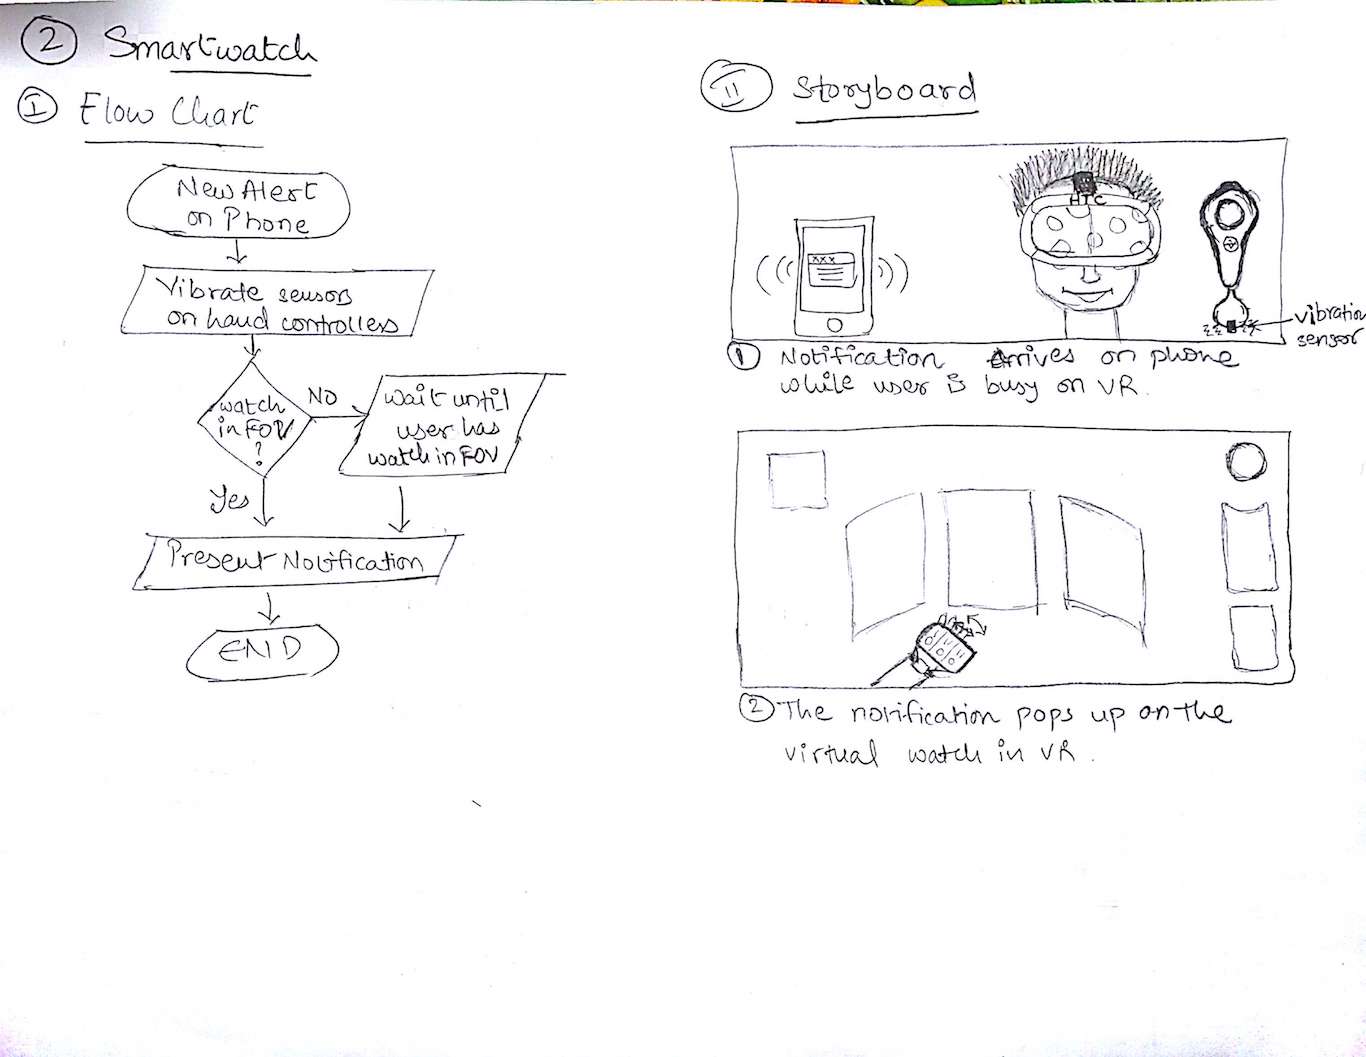 2 Smartwatch
I Flow Chart
New Alert
on Phone
Vibrate sensors
on hand controllers
watch
in FOV
?
NO
Wait until
user has
watch in FOV
Yes
Present Notification
END
II Storyboard
xxx
HTC
vibration
sensor
1 Notification Arrives on phone
while user is busy on VR.
2 The notification pops up on the
virtual watch in VR.